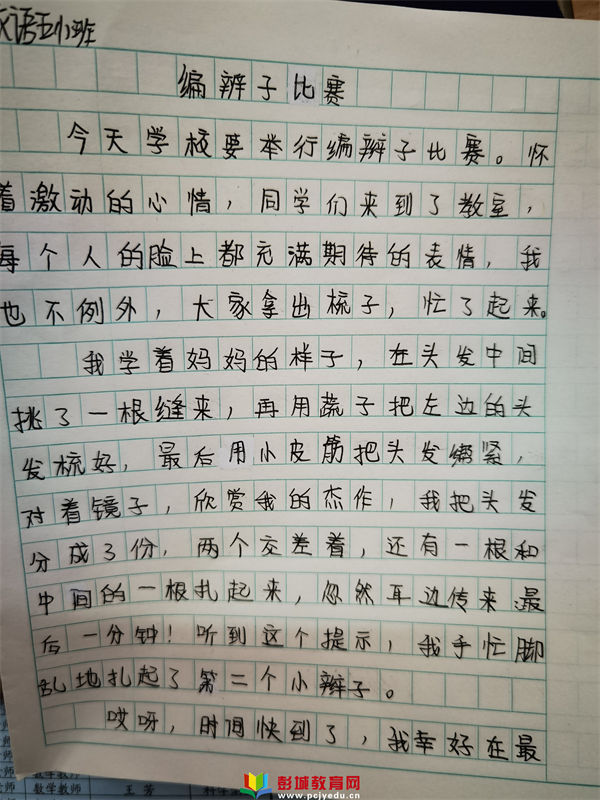 语五小班
编辫子比赛
今天学校要举行编辫子比赛。怀
着激动的心情，同学们来到了教室，
每个人的脸上都充满期待的表情，我
也不例外，大家拿出梳子，忙了起来。
我学着妈妈的样子，在头发中间
挑了一根缝来，再用蔬子把左边的头
发梳好，最后用小皮筋把头发绑紧，
对着镜子，欣赏我的杰作，我把头发
分成了份，两个交差着，还有一根和
中间的一根扎起来，忽然耳边传来最
后一分钟！听到这个提示，我手忙脚
乱地扎起了第二个小辫子。
哎呀，时间快到了，我幸好在最
数学教师
数学教师 王芳 科学
彭城教育网
www.pcjyedu.cn